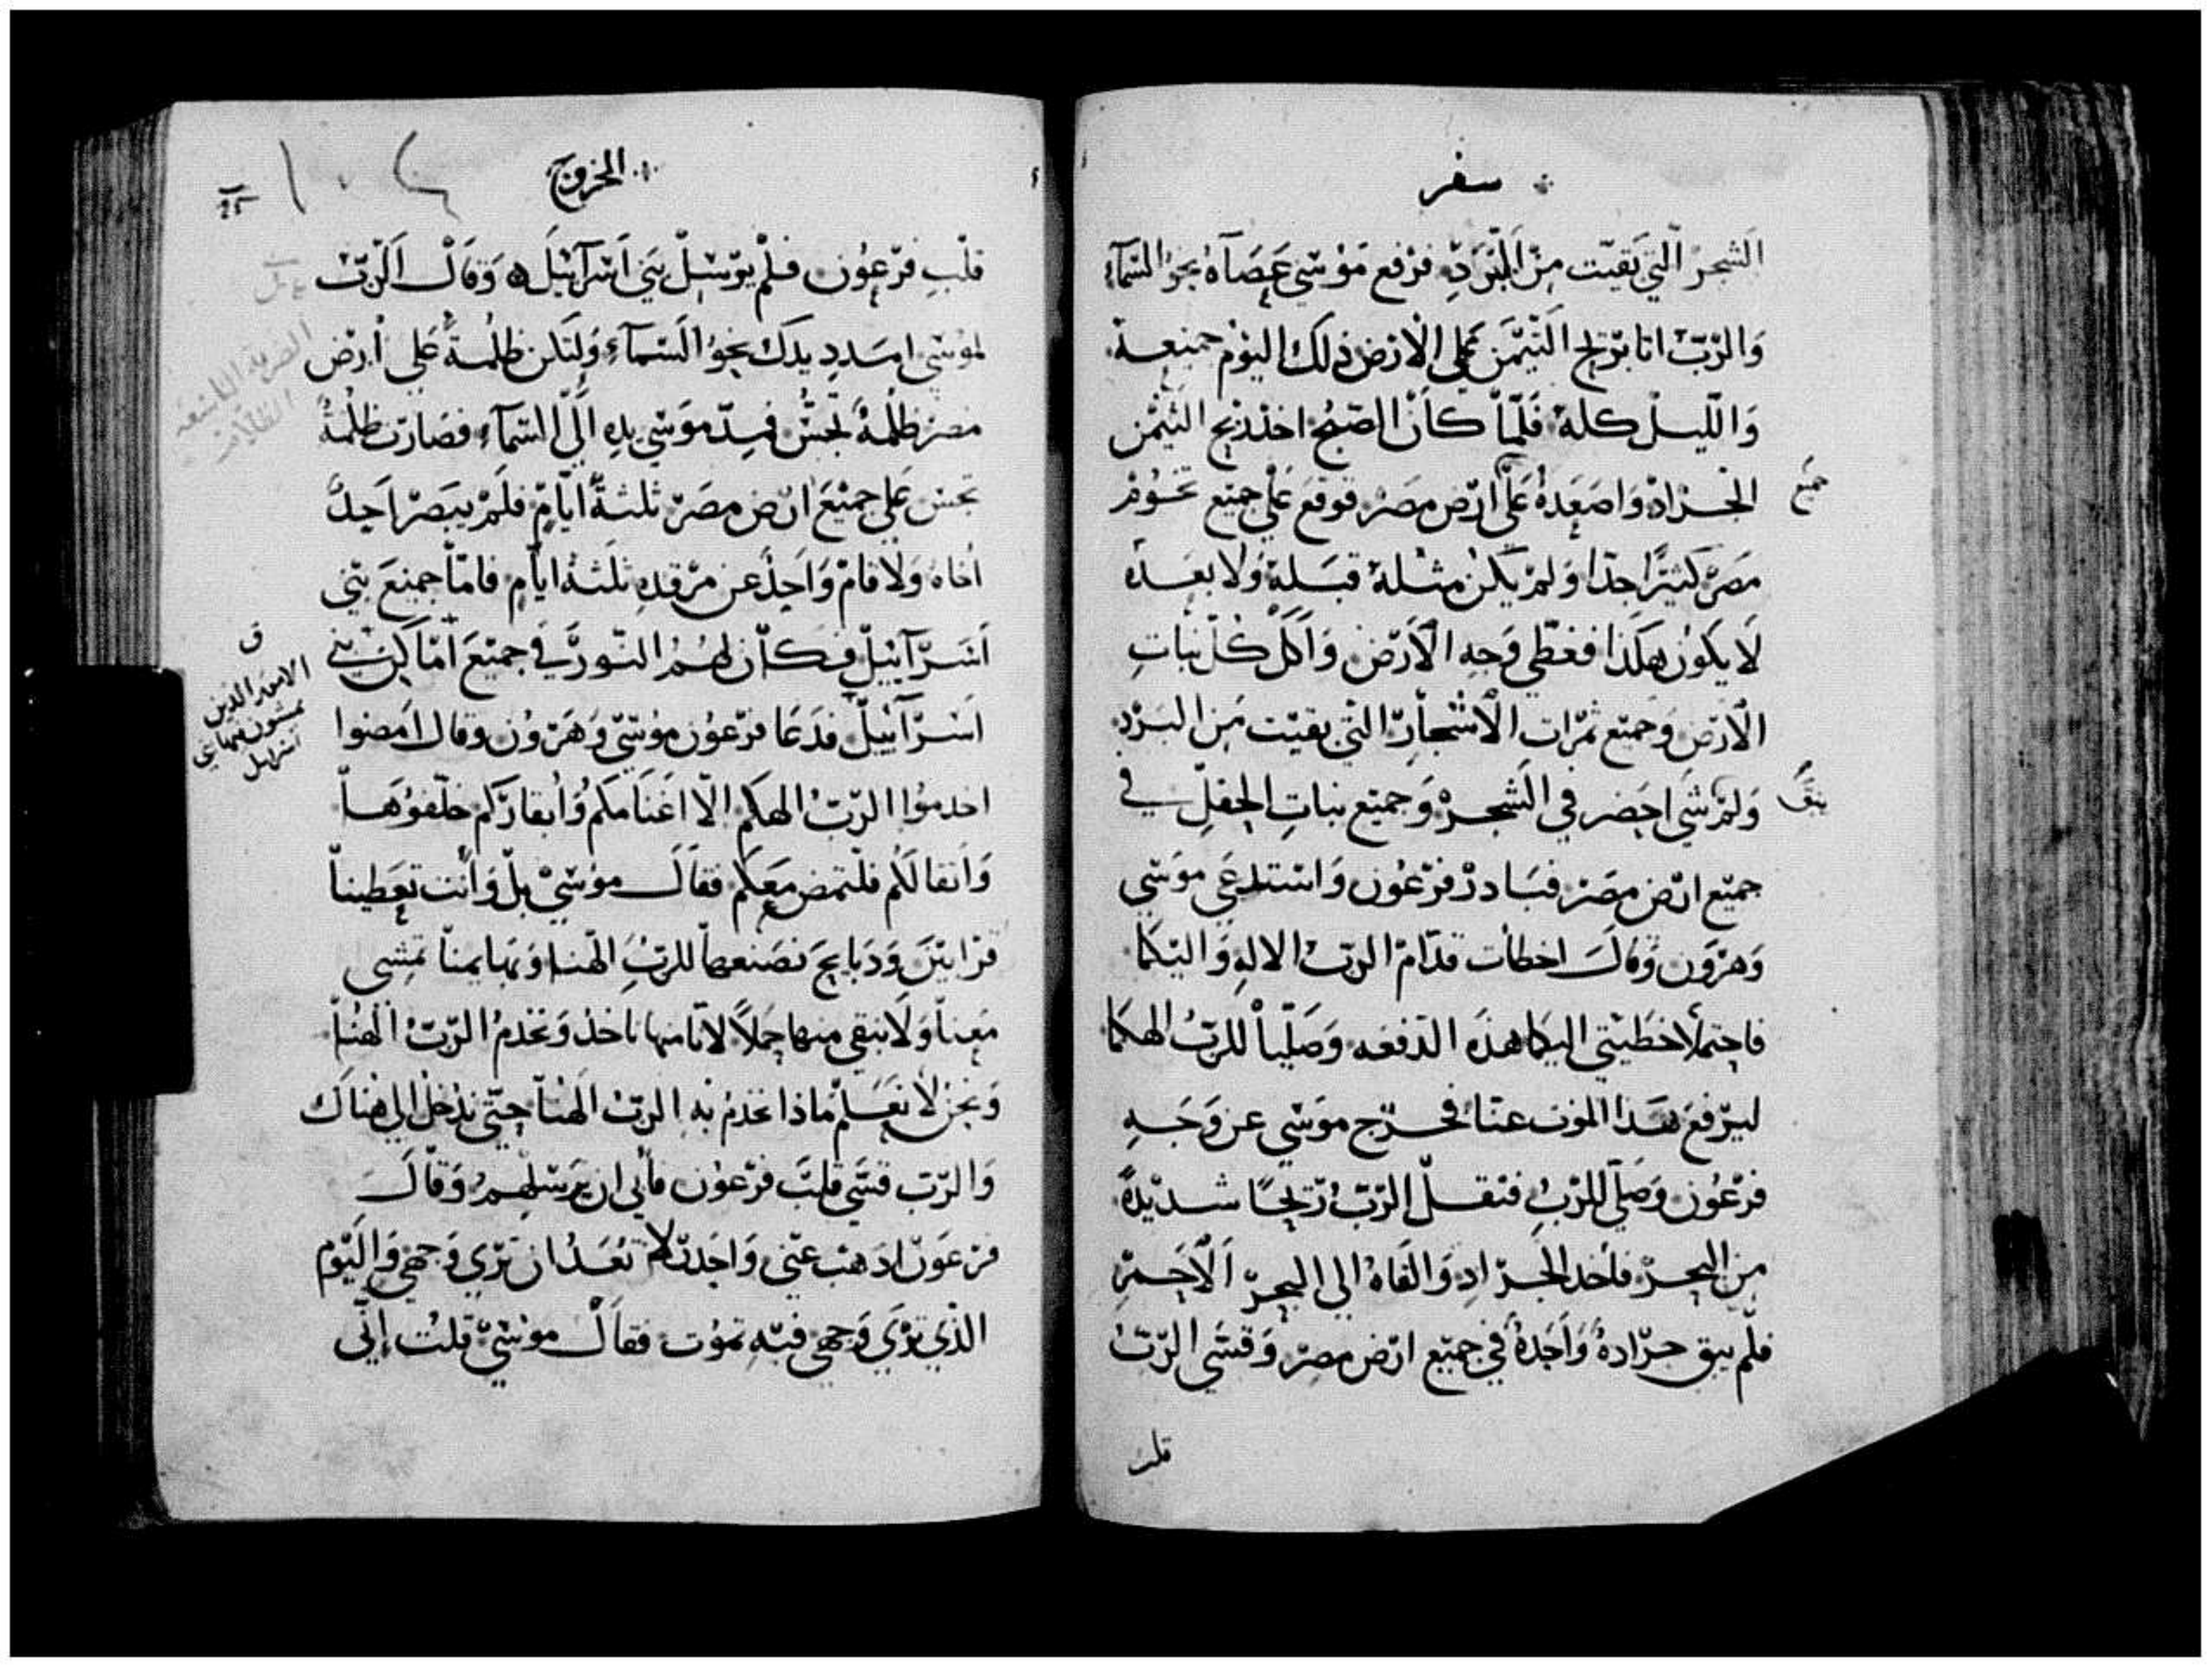 سفر
الشجر التي بقيت من البرد فرفع موسي عصاه نحو السماء
والرب اتا بريح التيمن علي الارض ذلك اليوم جميعه
والليل كله فلما كان الصبح اخذ ريح التيمن
الجراد واصعده علي ارض مصر فوقع علي جميع تخوم
جميع
مصر كثيرا جدا ولم يكن مثله قبله ولا بعده
لا يكون هكذا فغطي وجه الارض واكل كل نبات
الارض وجميع ثمرات الاشجار التي بقيت من البرد
ولم شي اخضر في الشجر وجميع نبات الحقل في
يبق
جميع ارض مصر فبادر فرعون واستدعي موسي
وهرون وقال اخطات قدام الرب الاله واليكما
فاحتملا خطيتي اليكما هذه الدفعه وصليا للرب الهكما
ليرفع هذا الموت عنا فخرج موسي عن وجه
فرعون وصلي للرب فنقل الرب ريحا شديدة
من البحر فاخد الجراد والقاه الي البحر الاحمر
فلم يبق جرادة واحدة في جميع ارض مصر وقسي الرب
قلب
الخروج
قلب فرعون فلم يرسل بني اسرائيل وقال الرب
لموسي امدد يدك نحو السماء ولتكن ظلمة علي ارض
الضربة التاسعه
الظلام
مصر ظلمة تجس فمد موسي يده الي السماء فصارت ظلمة
تجس علي جميع ارض مصر ثلثة ايام فلم يبصر احد
اخاه ولا قام واحد عن مرقده ثلثة ايام فاما جميع بني
اسرائيل فكان لهم النور في جميع اماكن بني
اسرائيل فدعا فرعون موسي وهرون وقال امضوا
اخدموا الرب الهكم الا اغنامكم وابقاركم خلفوها
واثقالكم فلتمض معكم فقال موسي بل وانت تعطينا
قرابين ودبايح نصنعها للرب الهنا وبهايمنا تمشي
معنا ولا نبقي منها حملا لاننا منها ناخذ ونخدم الرب الهنا
ونحن لا نعلم ماذا نخدم به الرب الهنا حتي ندخل الي هناك
والرب قسي قلب فرعون فابي ان يرسلهم وقال
فرعون ادهب عني واحدر لا تعد ان تري وجهي واليوم
الذي تري وجهي فيه تموت فقال موسي قلت اني